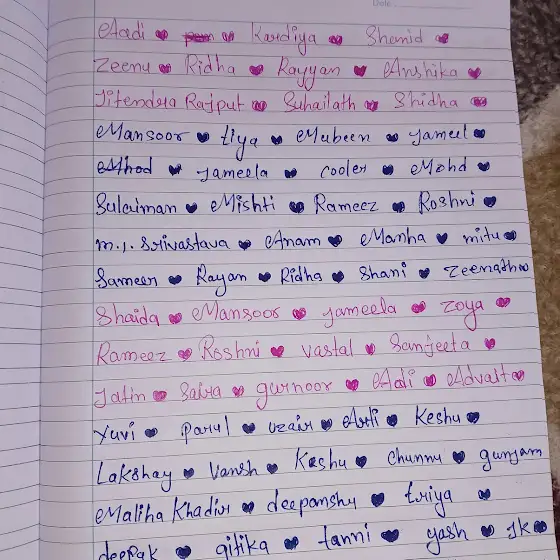 Aadi ♥ ♥ Kavdiya ♥ Shamid ♥
Zeenu ♥ Ridha ♥ Rayyan ♥ Anshika ♥
Jitendera Rajput ♥ Suhailath ♥ Shidha ♥
Mansoor ♥ tiya ♥ Mubeen ♥ Jameel ♥
♥ Jameela ♥ cooler ♥ Mohd ♥
Sulaiman ♥ Mishti ♥ Rameez ♥ Roshni ♥
m.j. Srivastava ♥ Anam ♥ Manha ♥ mitu ♥
Sameen ♥ Rayan ♥ Ridha ♥ Shani ♥ Zeenath ♥
Shaida ♥ Mansoor ♥ Jameela ♥ Zoya ♥
Rameez ♥ Roshni ♥ vastal ♥ Sanjeeta ♥
Jatin ♥ ♥ gurnoor ♥ Aadi ♥ Advait ♥
Yuvi ♥ parul ♥ uzair ♥ Arti ♥ Keshu ♥
Lakshay ♥ Vansh ♥ Keshu ♥ Chunnu ♥ gunjam
Maliha Khadir ♥ deepanshu ♥ triya ♥
deepak ♥ gitika ♥ tanni ♥ yash ♥ JK ♥